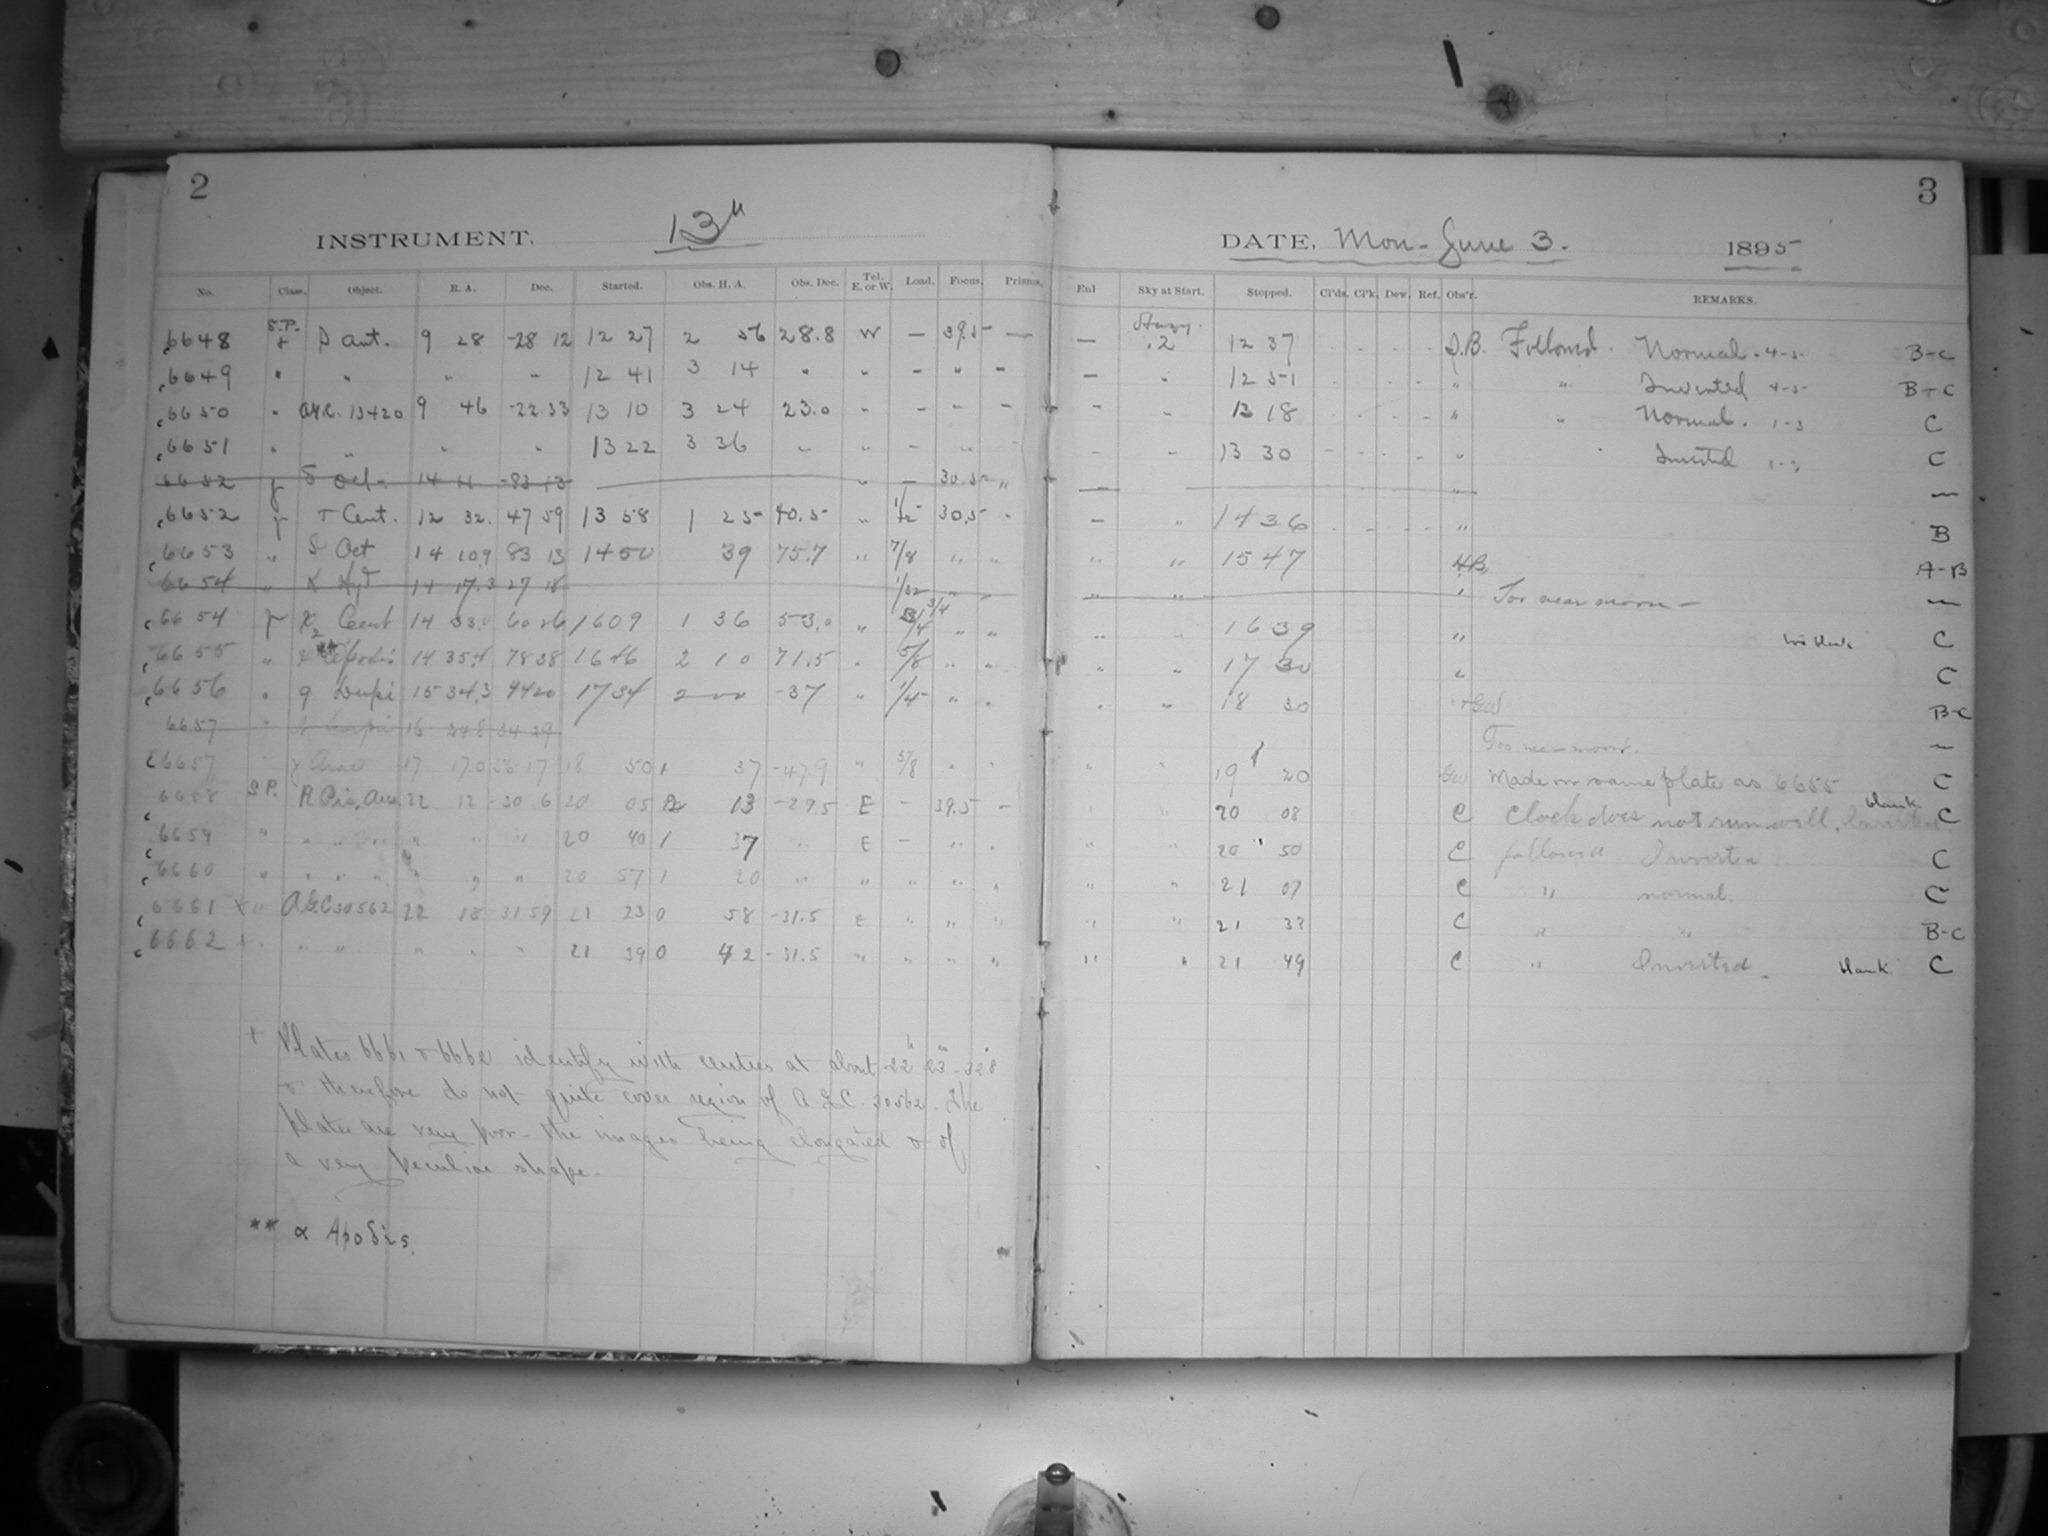 2
3
INSTRUMENT. 13"
DATE, Mon- June 3. 1895
No. Class. Object. R. A. Dec. Started. Obs. H. A. Obs. Dec. Tel. E. or W. Load. Focus. Prisms. Enl Sky at Start. Stopped. Cl'ds. Cl'k. Dew. Ref. Obs'r. REMARKS.
6648 S.P. ant. 9 28 -28 12 12 27 2 56 28.8 W — 39.5 — — .2 12 37 Followed. Normal. 4-5 B-C
6649 " " " " 12 41 3 14 " " - " - - " 12 51 " " Inverted 4-5 B-C
6650 " 13420 9 46 -22.33 13 10 3 24 23.0 " - " - - " 13 18 " " Normal. 1-3 C
6651 " " " " 13 22 3 36 " " - " - - " 13 30 " Inverted 1-3 C
6652 Oct. 14 11 -83 13 " — 30.5 " — " —
6652 τ Cent. 12 32. 47 59 13 58 1 25 40.5 " 1/2 30.5 " - " 14 36 " B
6653 " Oct 14 10.9 83 13 14 50 39 75.7 " 7/8 " " " " 15 47 A-B
6654 " Hyd 14 17.3 27 18 1/32 " " " " Too near moon — —
6654 Cent 14 33. 60 26 16 09 1 36 53.0 " 3/4 " " " " 16 39 " C
6655 " ** Apodis 14 35.4 78 38 16 46 2 10 71.5 " 5/8 " " " " 17 30 " C
6656 " g Lupi 15 34.3 44 20 17 34 2 00 -37 " 1/4 " " " " 18 30 B-C
6657 " Lupi 16 24.8 34 29 Too near moon. —
6657 γ Arae 17 17.0 56 17 18 50 1 37 -47.9 " 5/8 " " " " 19 20 Made on same plate as 6655 C
6658 S.P. Pis. Aus. 22 12 -30 6 20 05 2 13 -29.5 E - 39.5 - " " 20 08 C Clock does not run well. Inverted blank C
6659 " " " " " " 20 40 1 37 " E - " " " " 20 50 C followed Inverted C
6660 " " " " " " 20 57 1 20 " " " " " " " 21 07 C " normal. C
6661 + " A.G.C. 30562 22 18 31 59 21 23 0 58 -31.5 E " " " " " 21 33 C " " B-C
6662 " " " " " 21 39 0 42 -31.5 " " " " " " 21 49 C " Inverted - blank C
+ Plates 6661 & 6662 identify with centres at about 22h 23m -32.8°
& therefore do not quite cover region of A.G.C. 30562. The
plates are very poor - the images being elongated & of
a very peculiar shape.
** α Apodis.